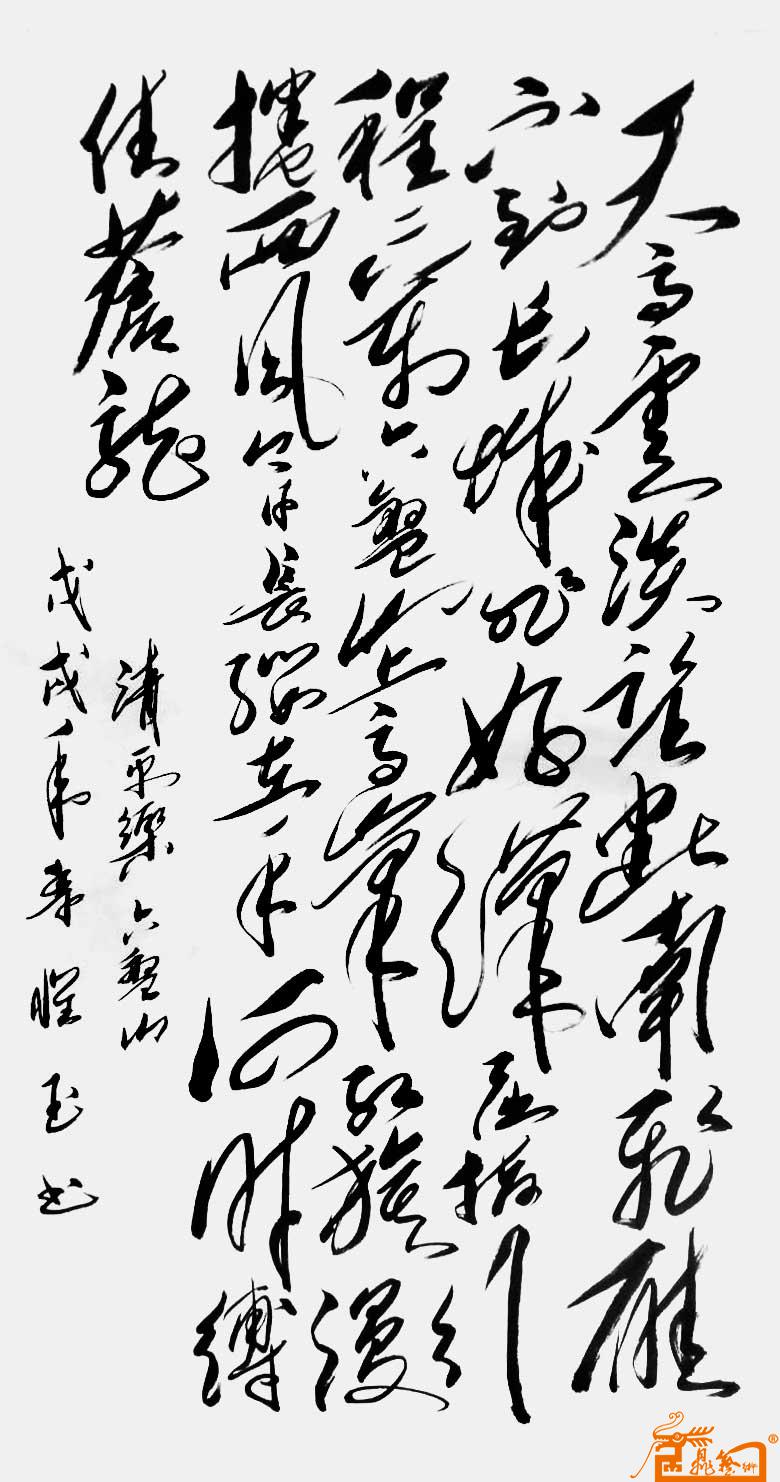 天高雲淡望断南飛雁
不到長城非好漢屈指行
程二萬六盤山上高峰紅旗漫
捲西風今日長纓在手何時縛
住蒼龍
清平樂六盤山
戊戌年春曜玉书